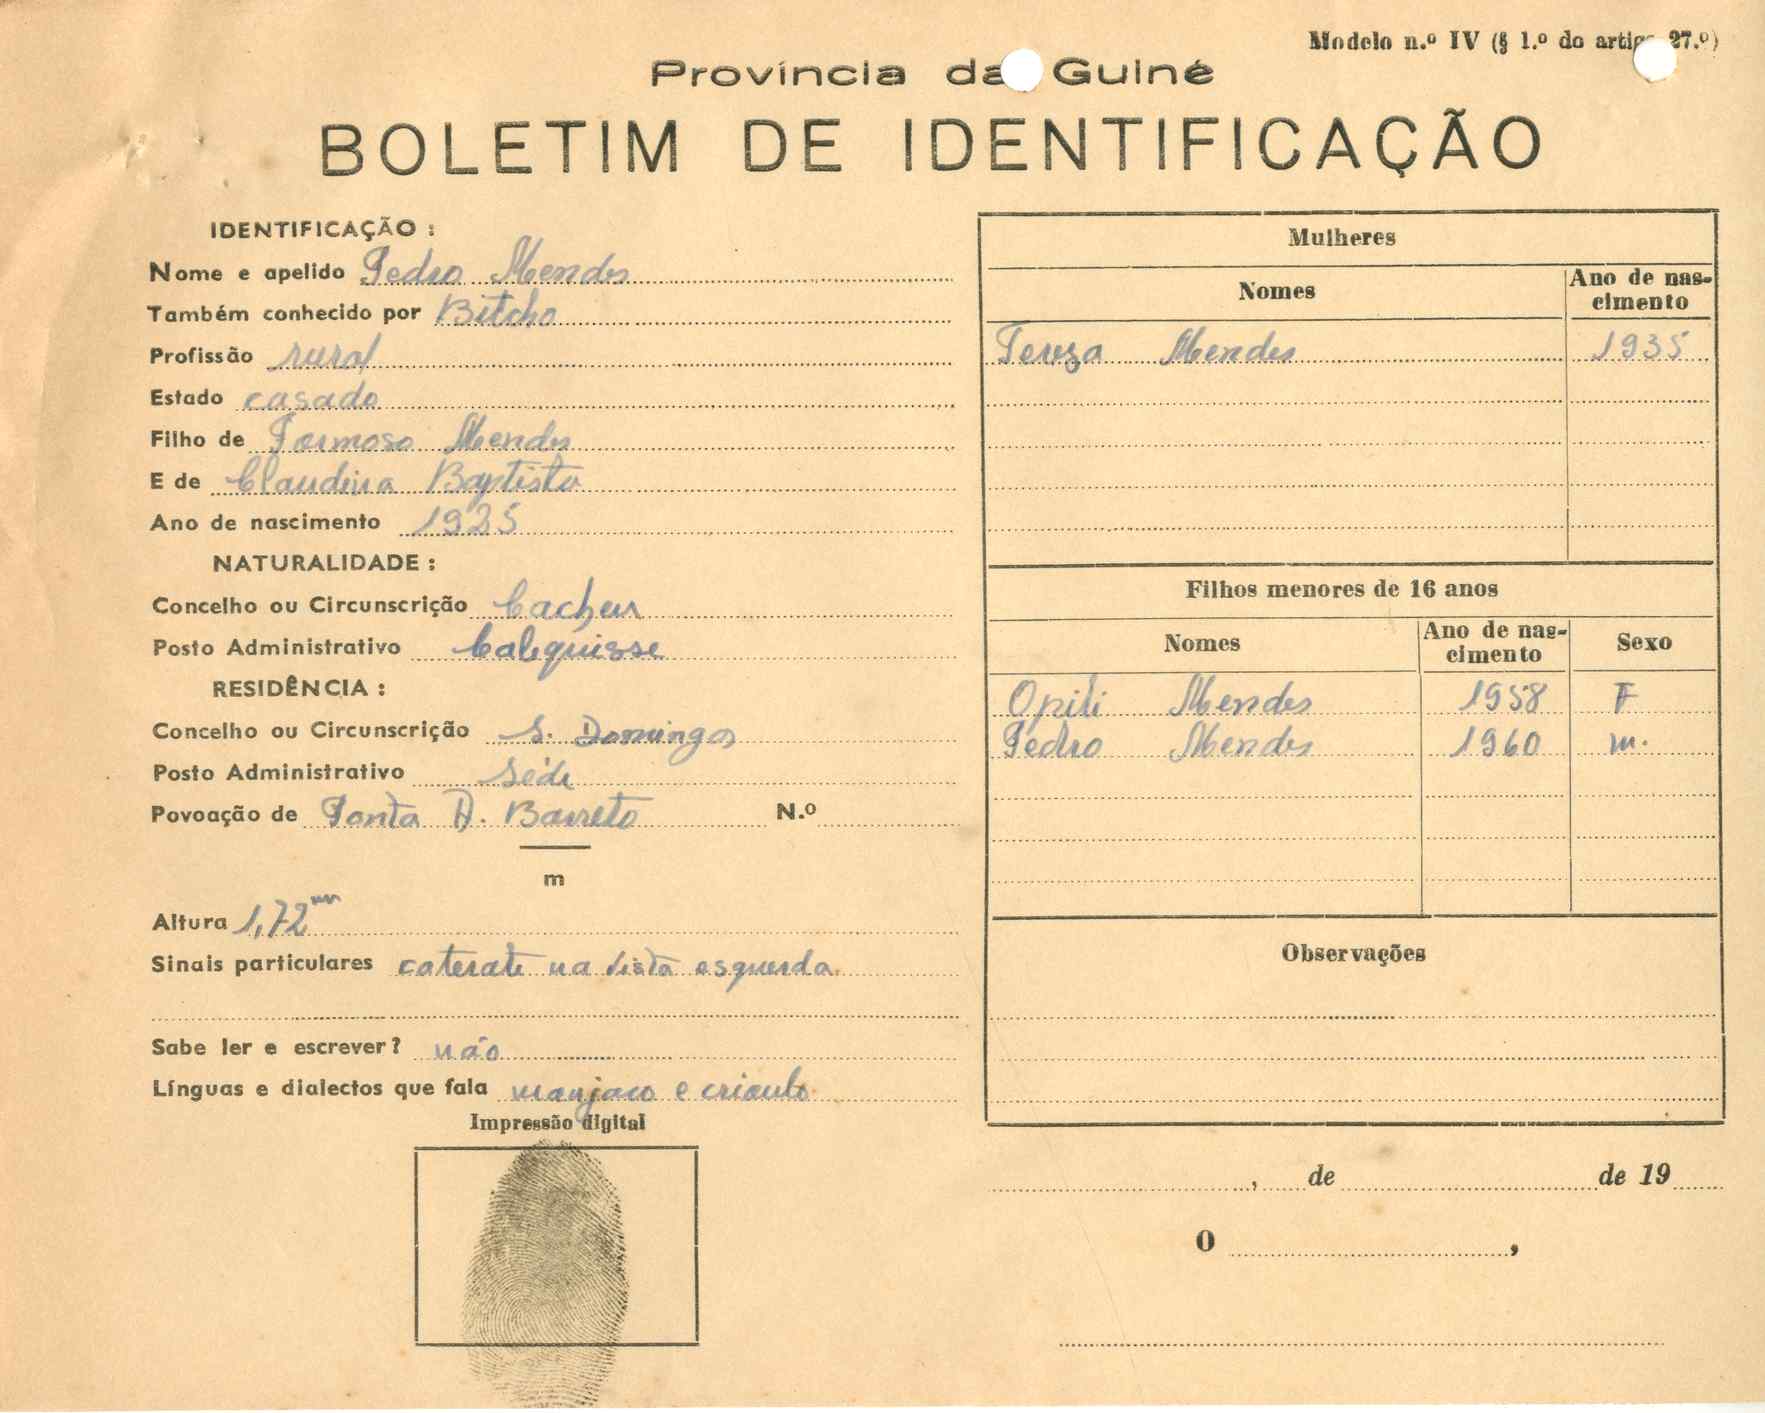 Modelo n.º IV (§ 1.º do artigo 27.º)
Província da Guiné
BOLETIM DE IDENTIFICAÇÃO
IDENTIFICAÇÃO :
Nome e apelido Pedro Mendes
Também conhecido por Bitcho
Profissão rural
Estado casado
Filho de Formoso Mendes
E de Claudina Baptista
Ano de nascimento 1925
NATURALIDADE :
Concelho ou Circunscrição Cacheu
Posto Administrativo Calequisse
RESIDÊNCIA :
Concelho ou Circunscrição S. Domingos
Posto Administrativo Séde
Povoação de Ponta A. Barreto N.º
m
Altura 1,72 m
Sinais particulares caterate na vista esquerda
Sabe ler e escrever? não
Línguas e dialectos que fala manjaco e crioulo
Impressão digital
Mulheres
Nomes Ano de nas-
cimento
Tereza Mendes 1935
Filhos menores de 16 anos
Nomes Ano de nas-
cimento Sexo
Opili Mendes 1958 F
Pedro Mendes 1960 m.
Observações
, de de 19
O ,